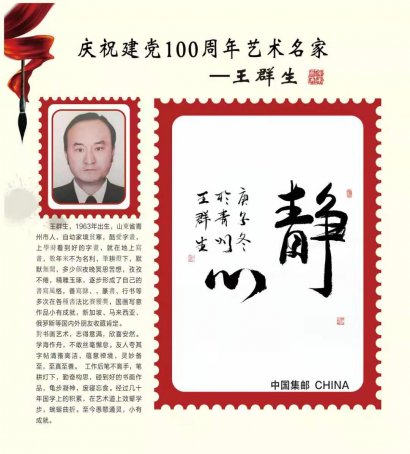 庆祝建党100周年艺术名家
—王群生
王群生，1963年出生，山東省青
州市人，自幼家境贫寒，酷愛字畫，
上學時看到好的字畫，就在地上寫
畫，数年来不为名利，筆耕燈下，默
默無聞，多少個夜晚冥思苦想，孜孜
不倦，精雕玉琢，逐步形成了自己的
書寫風格。善寫隸、、篆書、行书等
多次在各種書法比赛獲奬，国画写意
作品小有成就，新加坡、马来西亚，
俄罗斯等国内外朋友收藏肯定。
對书画艺术，志得意满，欣喜安然。
学海作舟，不敢丝毫懈怠，友人夸其
字帖清雅高洁、蕴意禅境，灵妙备
至，至真至善。 工作后笔不离手，笔
耕灯下，勤奋构思，碰到好的书画作
品，龟步凝神，废寝忘食。经过几十
年国学上的积累，在艺术道上效颦学
步，蜿蜒曲折。至今愚憨通灵，小有
成就。
静
心
庚子冬
於青州
王群生
中国集邮 CHINA